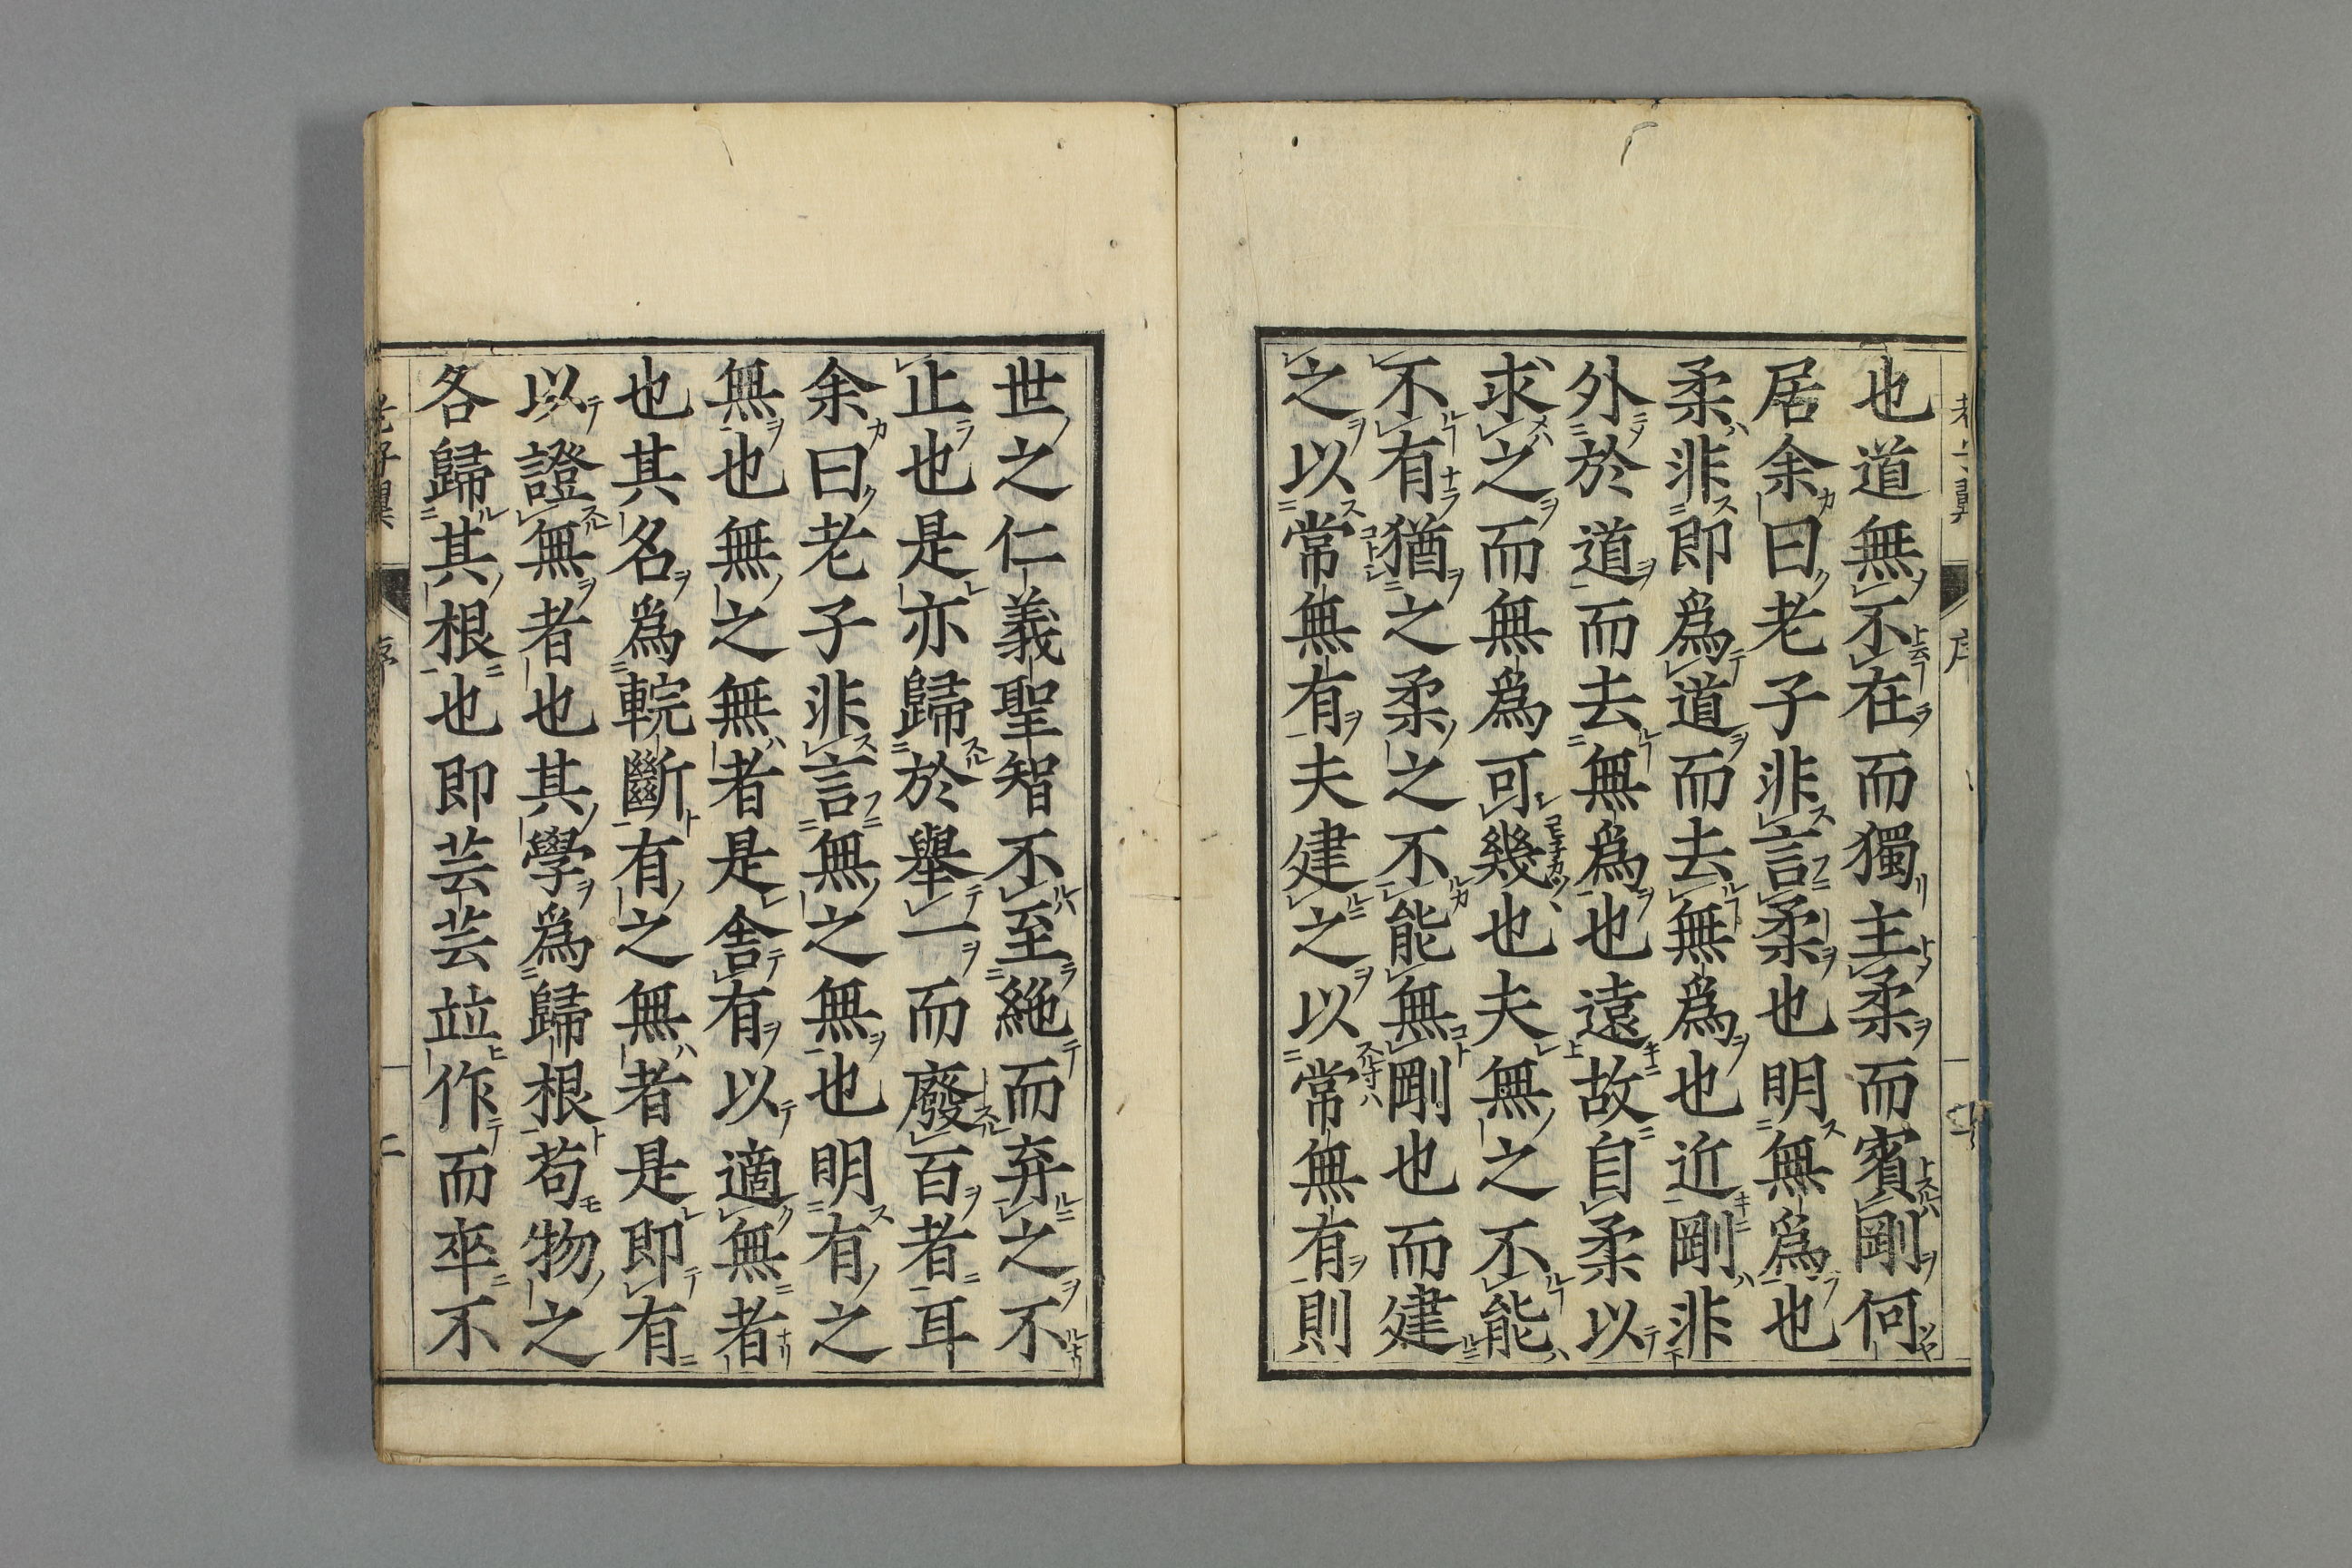 也道無不在而獨主柔而賓剛何
居余曰老子非言柔也明無爲也
柔非即爲道而去無爲也近剛非
外於道而去無爲也遠故自柔以
求之而無爲可幾也夫無之不能
不有猶之柔之不能無剛也而建
之以常無有夫建之以常無有則
世之仁義聖智不至絶而弃之不
止也是亦歸於舉一而廢百者耳
余曰老子非言無之無也明有之
無也無之無者是舎有以適無者
也其名爲輐斷有之無者是即有
以證無者也其學爲歸根苟物之
各歸其根也即芸芸竝作而卒不
老子翼 序 二